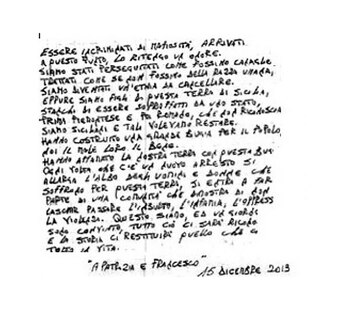 ESSERE INCRIMINATI DI MAFIOSITÀ, ARRIVATI
A QUESTO PUNTO, LO RITENGO UN ONORE.
SIAMO STATI PERSEGUITATI COME FOSSIMO CANAGLIE.
TRATTATI COME SE NON FOSSIMO DELLA RAZZA UMANA,
SIAMO DIVENTATI UN'ETNIA DA CANCELLARE.
EPPURE SIAMO FIGLI DI QUESTA TERRA DI SICILIA,
STANCHI DI ESSERE SOPRAFFATTI DA UNO STATO,
PRIMA PIEMONTESE E POI ROMANO, CHE NON RICONOSCIA
SIAMO SICILIANI E TALI VOLEVANO RESTARE.
HANNO COSTRUITO UNA GRANDE BUGIA PER IL POPOLO.
NOI IL MALE LORO IL BENE.
HANNO AFFAMATO LA NOSTRA TERRA CON QUESTA BUG
OGNI VOLTA CHE C'È UN NUOVO ARRESTO SI
ALLARGA L'ALBO DEGLI UOMINI E DONNE CHE
SOFFRONO PER QUESTA TERRA, SI ENTRA A FAR
PARTE DI UNA COMUNITÀ CHE DIMOSTRA DI NON
LASCIAR PASSARE L'INSULTO, L'INFAMIA, L'OPPRESS
LA VIOLENZA. QUESTO SIAMO, ED UN GIORNO
SONO CONVINTO, TUTTO CIÒ CI SARÀ RICONO
E LA STORIA CI RESTITUIRÀ QUELLO CHE CI
TOLTO IN VITA.
"A PATRIZIA E FRANCESCO"
15 DICEMBRE 2013